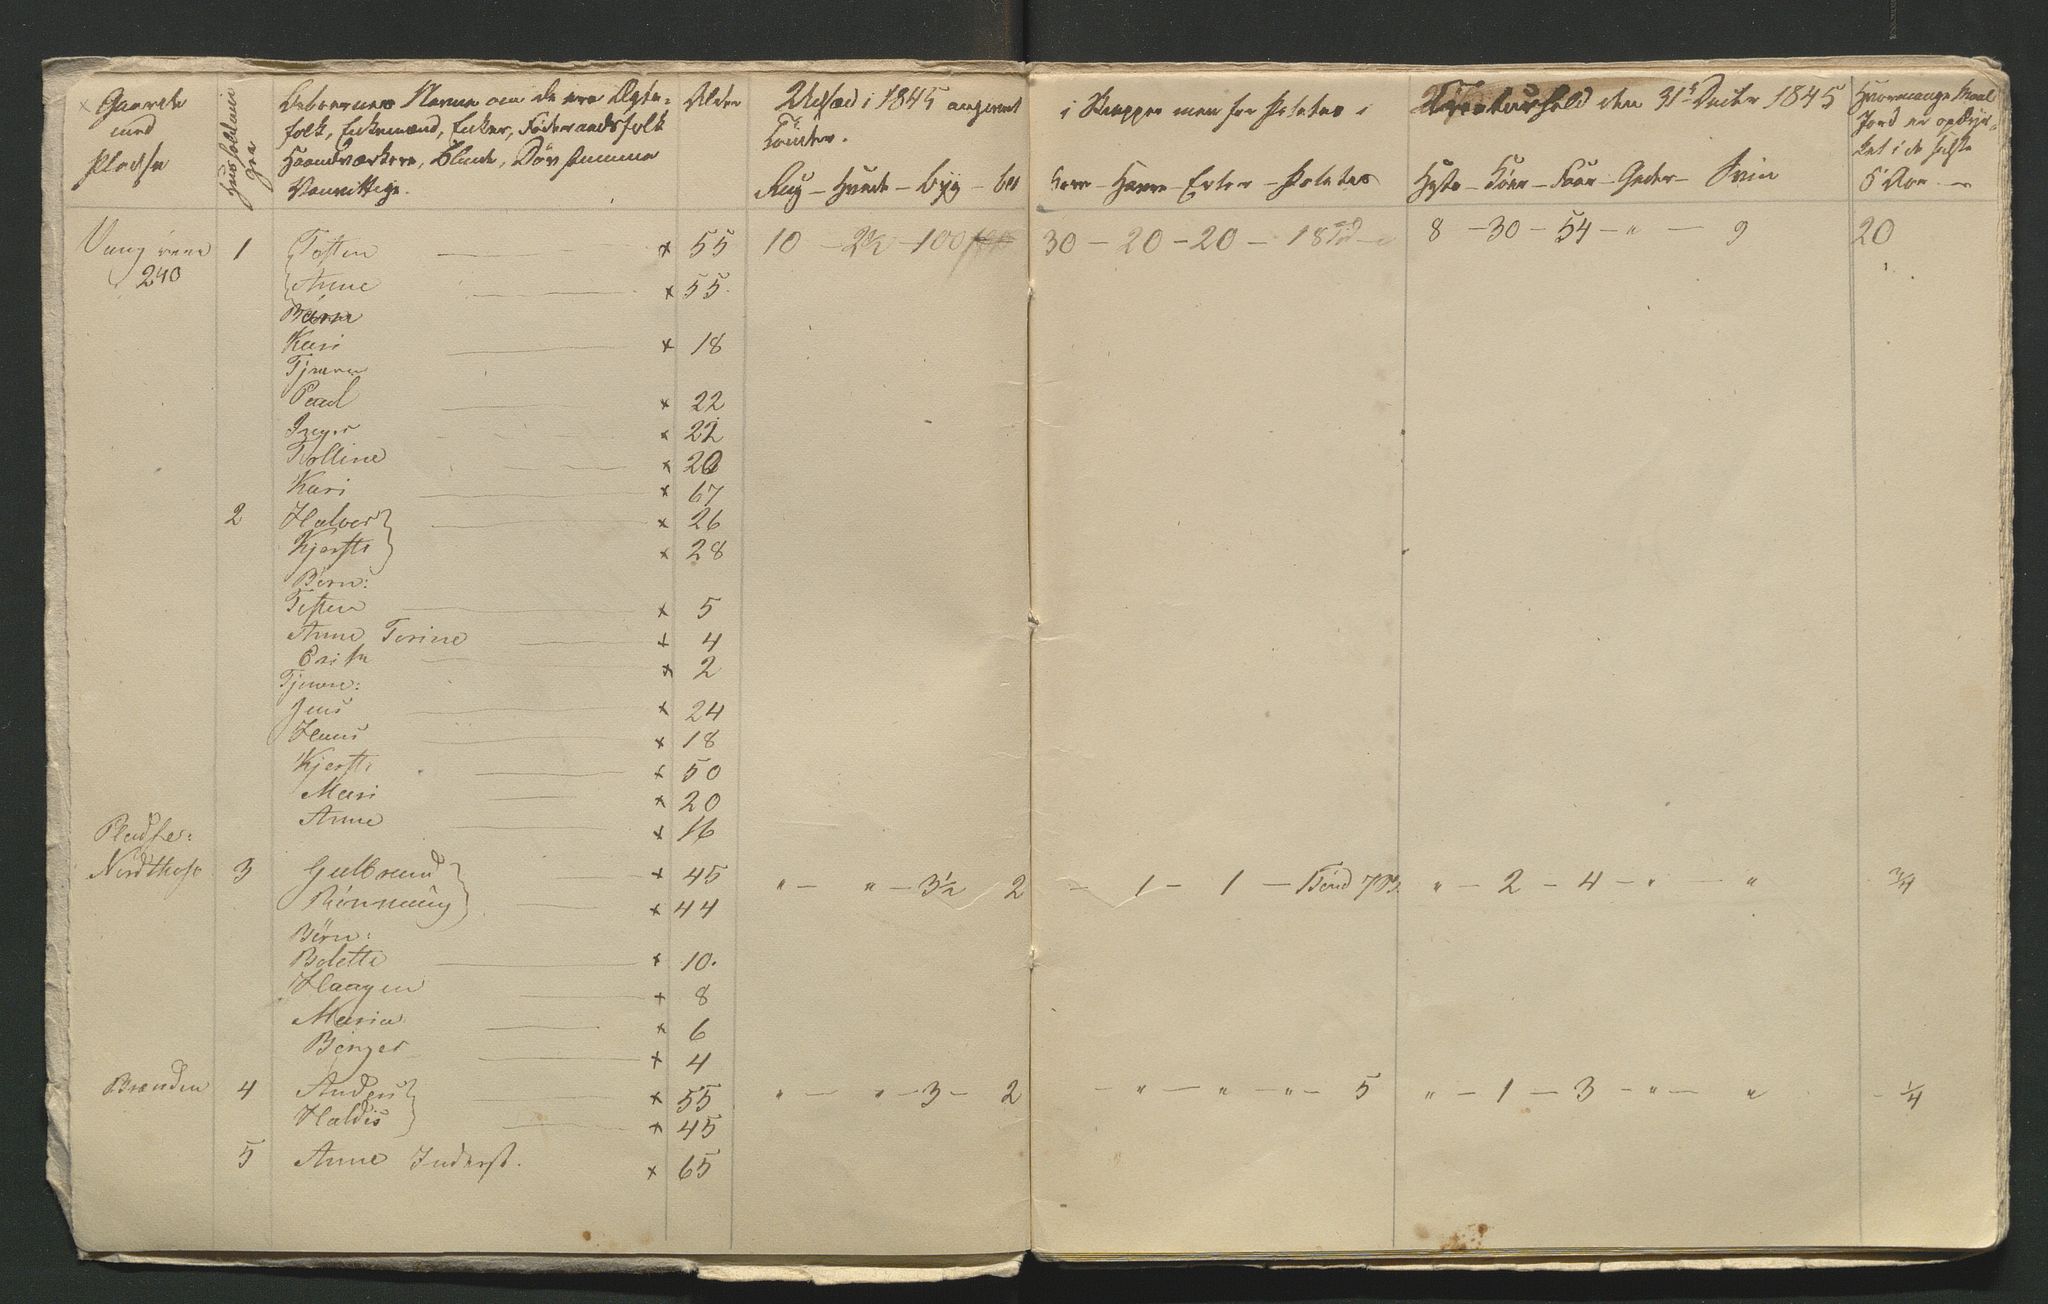 Gaarde
med
Pladse
Huusholdnin
ger
Beboernes Navne om de ere Ægte-
folk, Enkemænd, Enker, Føderaadsfolk
Haandværkere, Blinde, Døvstumme
Vanvittige.
Alder
Udsæd i 1845 angivet
Tønder.
Rug – Hvede – byg – bl
i Skjepper men for Potetes i
Havre – Erter – Potetes
Kreaturhold den 31t Decbr 1845
Heste – Køer – Faar – Geder – Sviin
Hvormange Maal
Jord er opdyr-
ket i de sidste
5 Aar. –
Vang
240
1 Tosten x 55 10 – 2½ – 100 30 – 20 – 20 – 18 8 – 30 – 54 – " – 9 20
Anne x 55
Børn
Kari x 18
Tjenere
Paul x 22
Inger x 22
Tolline x 20
Kari x 67
2 Halvor x 26
Kjersti x 28
Børn:
Tosten x 5
Anne Torine x 4
x 2
Tjenere:
Jens x 24
Hans x 18
Kjersti x 50
Mari x 20
Anne x 16
Pladser:
3 Gulbrand x 45 " – " – 3½ 2 – 1 – 1 – Tønd " – 2 – 4 – " – " ¾
Rønnaug x 44
Børn:
Bolette x 10.
Haagen x 8
Maria x 6
Berger x 4
Brænden 4 Anders x 55 " – " – 3 – 2 – " – " – " – 5 " – 1 – 3 – " – " – ¼
Haldis x 45
5 Anne Inderst. x 65